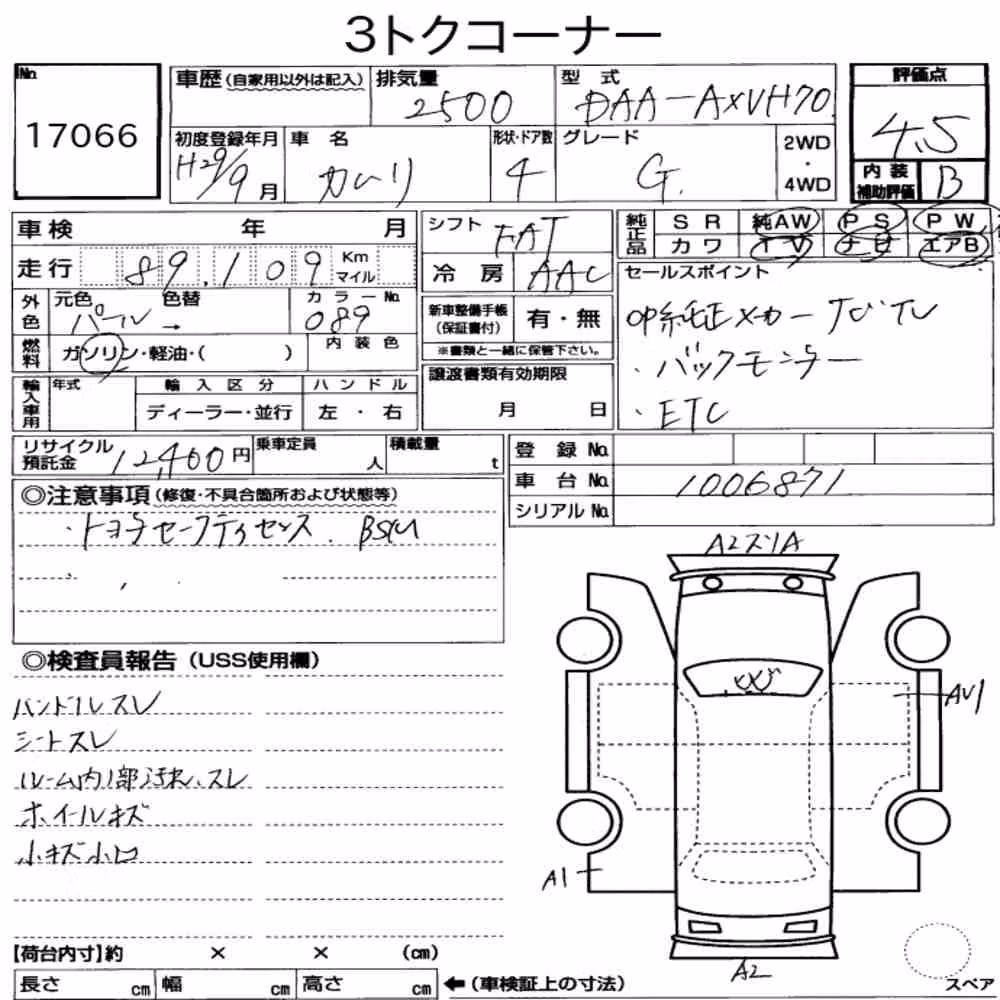 3トクコーナー
No.
17066
車歴(自家用以外は記入)
排気量
2500
型式
DAA-AXVH70
評価点
4.5
内装補助評価
B
初度登録年月
H29/9月
車名
カムリ
形状・ドア数
4
グレード
G.
2WD
・
4WD
車検 年 月
走行 89.109 Km
マイル
外色
元色 色替
パール →
カラーNo.
089
燃料
ガソリン・軽油・( )
内装色
輸入車用
年式
輸入区分
ディーラー・並行
ハンドル
左・右
シフト FAT
冷房 AAC
新車整備手帳
(保証書付)
有・無
※書類と一緒に保管下さい。
譲渡書類有効期限
月 日
純正品
SR 純AW PS PW
カワ TV ナビ エアB
セールスポイント
OP純正メーカーナビTV
・バックモニター
・ETC
リサイクル
預託金 12,460円
乗車定員
人
積載量
t
登録No.
車台No. 1006871
シリアルNo.
◎注意事項(修復・不具合箇所および状態等)
・トヨタセーフティセンス. BSM
◎検査員報告(USS使用欄)
ハンドルスレ
シートスレ
ルーム内1部汚れ、スレ
ホイールキズ
小キズ小凹
A2スリA
AU1
A1
A2
【荷台内寸】約 × × (cm)
長さ cm 幅 cm 高さ cm ←(車検証上の寸法)
スペア